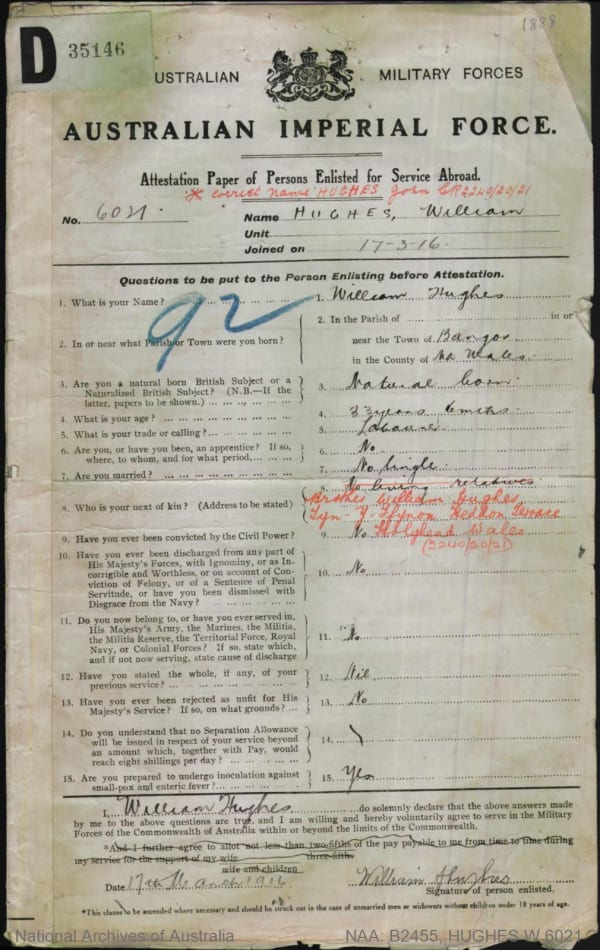 1888
D 35146
AUSTRALIAN MILITARY FORCES
AUSTRALIAN IMPERIAL FORCE.
Attestation Paper of Persons Enlisted for Service Abroad.
* correct name HUGHES John CR2240/20/21
No. 6021. Name HUGHES, William
Unit
Joined on 17-3-16.
Questions to be put to the Person Enlisting before Attestation.
92
1. What is your Name? 1. William Hughes
2. In or near what Parish or Town were you born? 2. In the Parish of in or
near the Town of Bangor
in the County of Nth Wales.
3. Are you a natural born British Subject or a
Naturalized British Subject? (N.B.—If the
latter, papers to be shown.) 3. Natural born.
4. What is your age? 4. 33 years 6 mnths.
5. What is your trade or calling? 5. Labourer
6. Are you, or have you been, an apprentice? If so,
where, to whom, and for what period, 6. No.
7. Are you married? 7. No Single
8. Who is your next of kin? (Address to be stated) 8. No living relatives
Brother William Hughes,
Tyn-Y-Ffynon Terrace
Holyhead Wales
(2240/20/21)
9. Have you ever been convicted by the Civil Power? 9. No
10. Have you ever been discharged from any part of
His Majesty's Forces, with Ignominy, or as In-
corrigible and Worthless, or on account of Con-
viction of Felony, or of a Sentence of Penal
Servitude, or have you been dismissed with
Disgrace from the Navy? 10. No.
11. Do you now belong to, or have you ever served in,
His Majesty's Army, the Marines, the Militia,
the Militia Reserve, the Territorial Force, Royal
Navy, or Colonial Forces? If so, state which,
and if not now serving, state cause of discharge 11. No.
12. Have you stated the whole, if any, of your
previous service? 12. Nil
13. Have you ever been rejected as unfit for His
Majesty's Service? If so, on what grounds? 13. No
14. Do you understand that no Separation Allowance
will be issued in respect of your service beyond
an amount which, together with Pay, would
reach eight shillings per day? 14.
15. Are you prepared to undergo inoculation against
small-pox and enteric fever? 15. Yes
I, William Hughes do solemnly declare that the above answers made
by me to the above questions are true, and I am willing and hereby voluntarily agree to serve in the Military
Forces of the Commonwealth of Australia within or beyond the limits of the Commonwealth.
*And I further agree to allot not less than two-fifths of the pay payable to me from time to time during
three-fifths
my service for the support of my wife
wife and children
Date 17th March 1916 William Hughes
Signature of person enlisted.
*This clause to be amended where necessary and should be struck out in the case of unmarried men or widowers without children under 18 years of age.
National Archives of Australia NAA: B2455, HUGHES W 6021